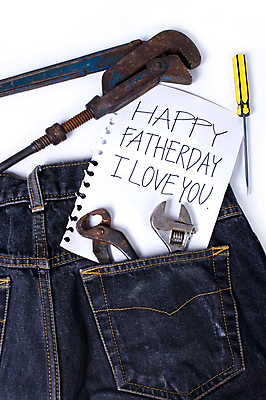 HAPPY
FATHERDAY
I LOVE YOU.